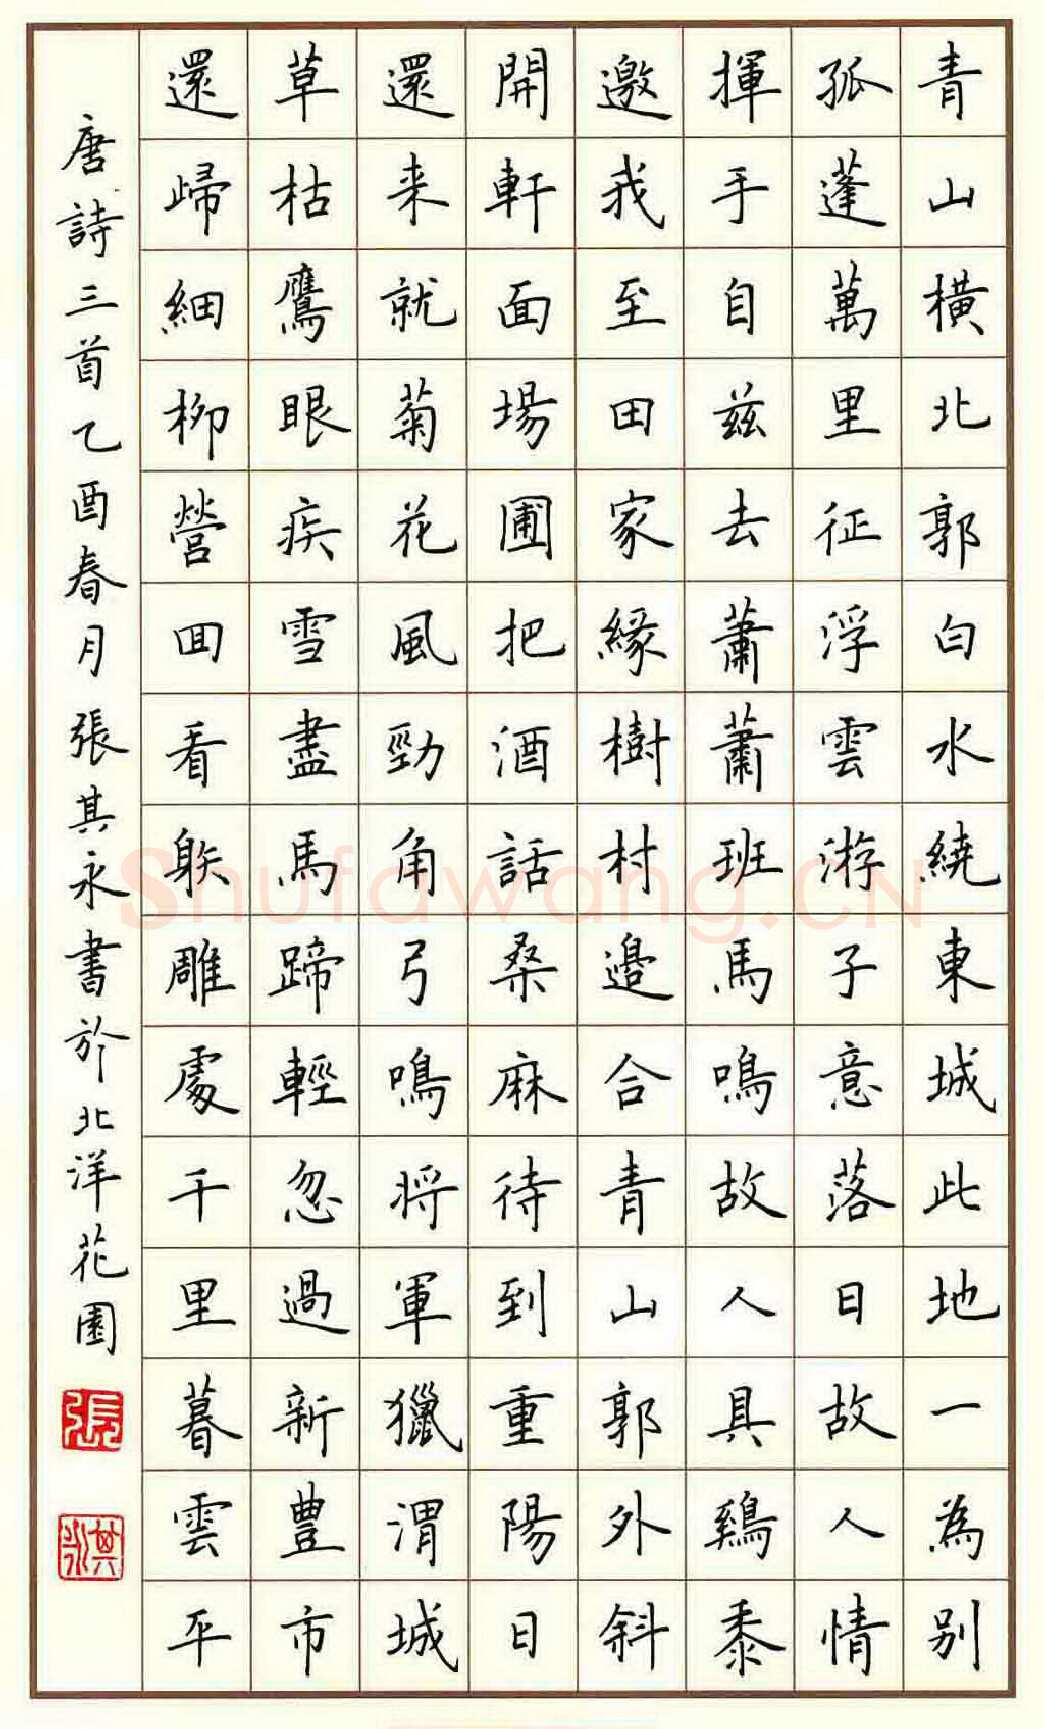 青山橫北郭白水繞東城此地一為別
孤蓬萬里征浮雲游子意落日故人情
揮手自茲去蕭蕭班馬鳴故人具鷄黍
邀我至田家緣樹村邉合青山郭外斜
開軒面場圃把酒話桑麻待到重陽日
還来就菊花風勁角弓鳴将軍獵渭城
草枯鷹眼疾雪盡馬蹄輕忽過新豊市
還歸細柳營囬看䠶雕處千里暮雲平
唐詩三首乙酉春月張其永書於北洋花園
張
其永
Shufawang.CN